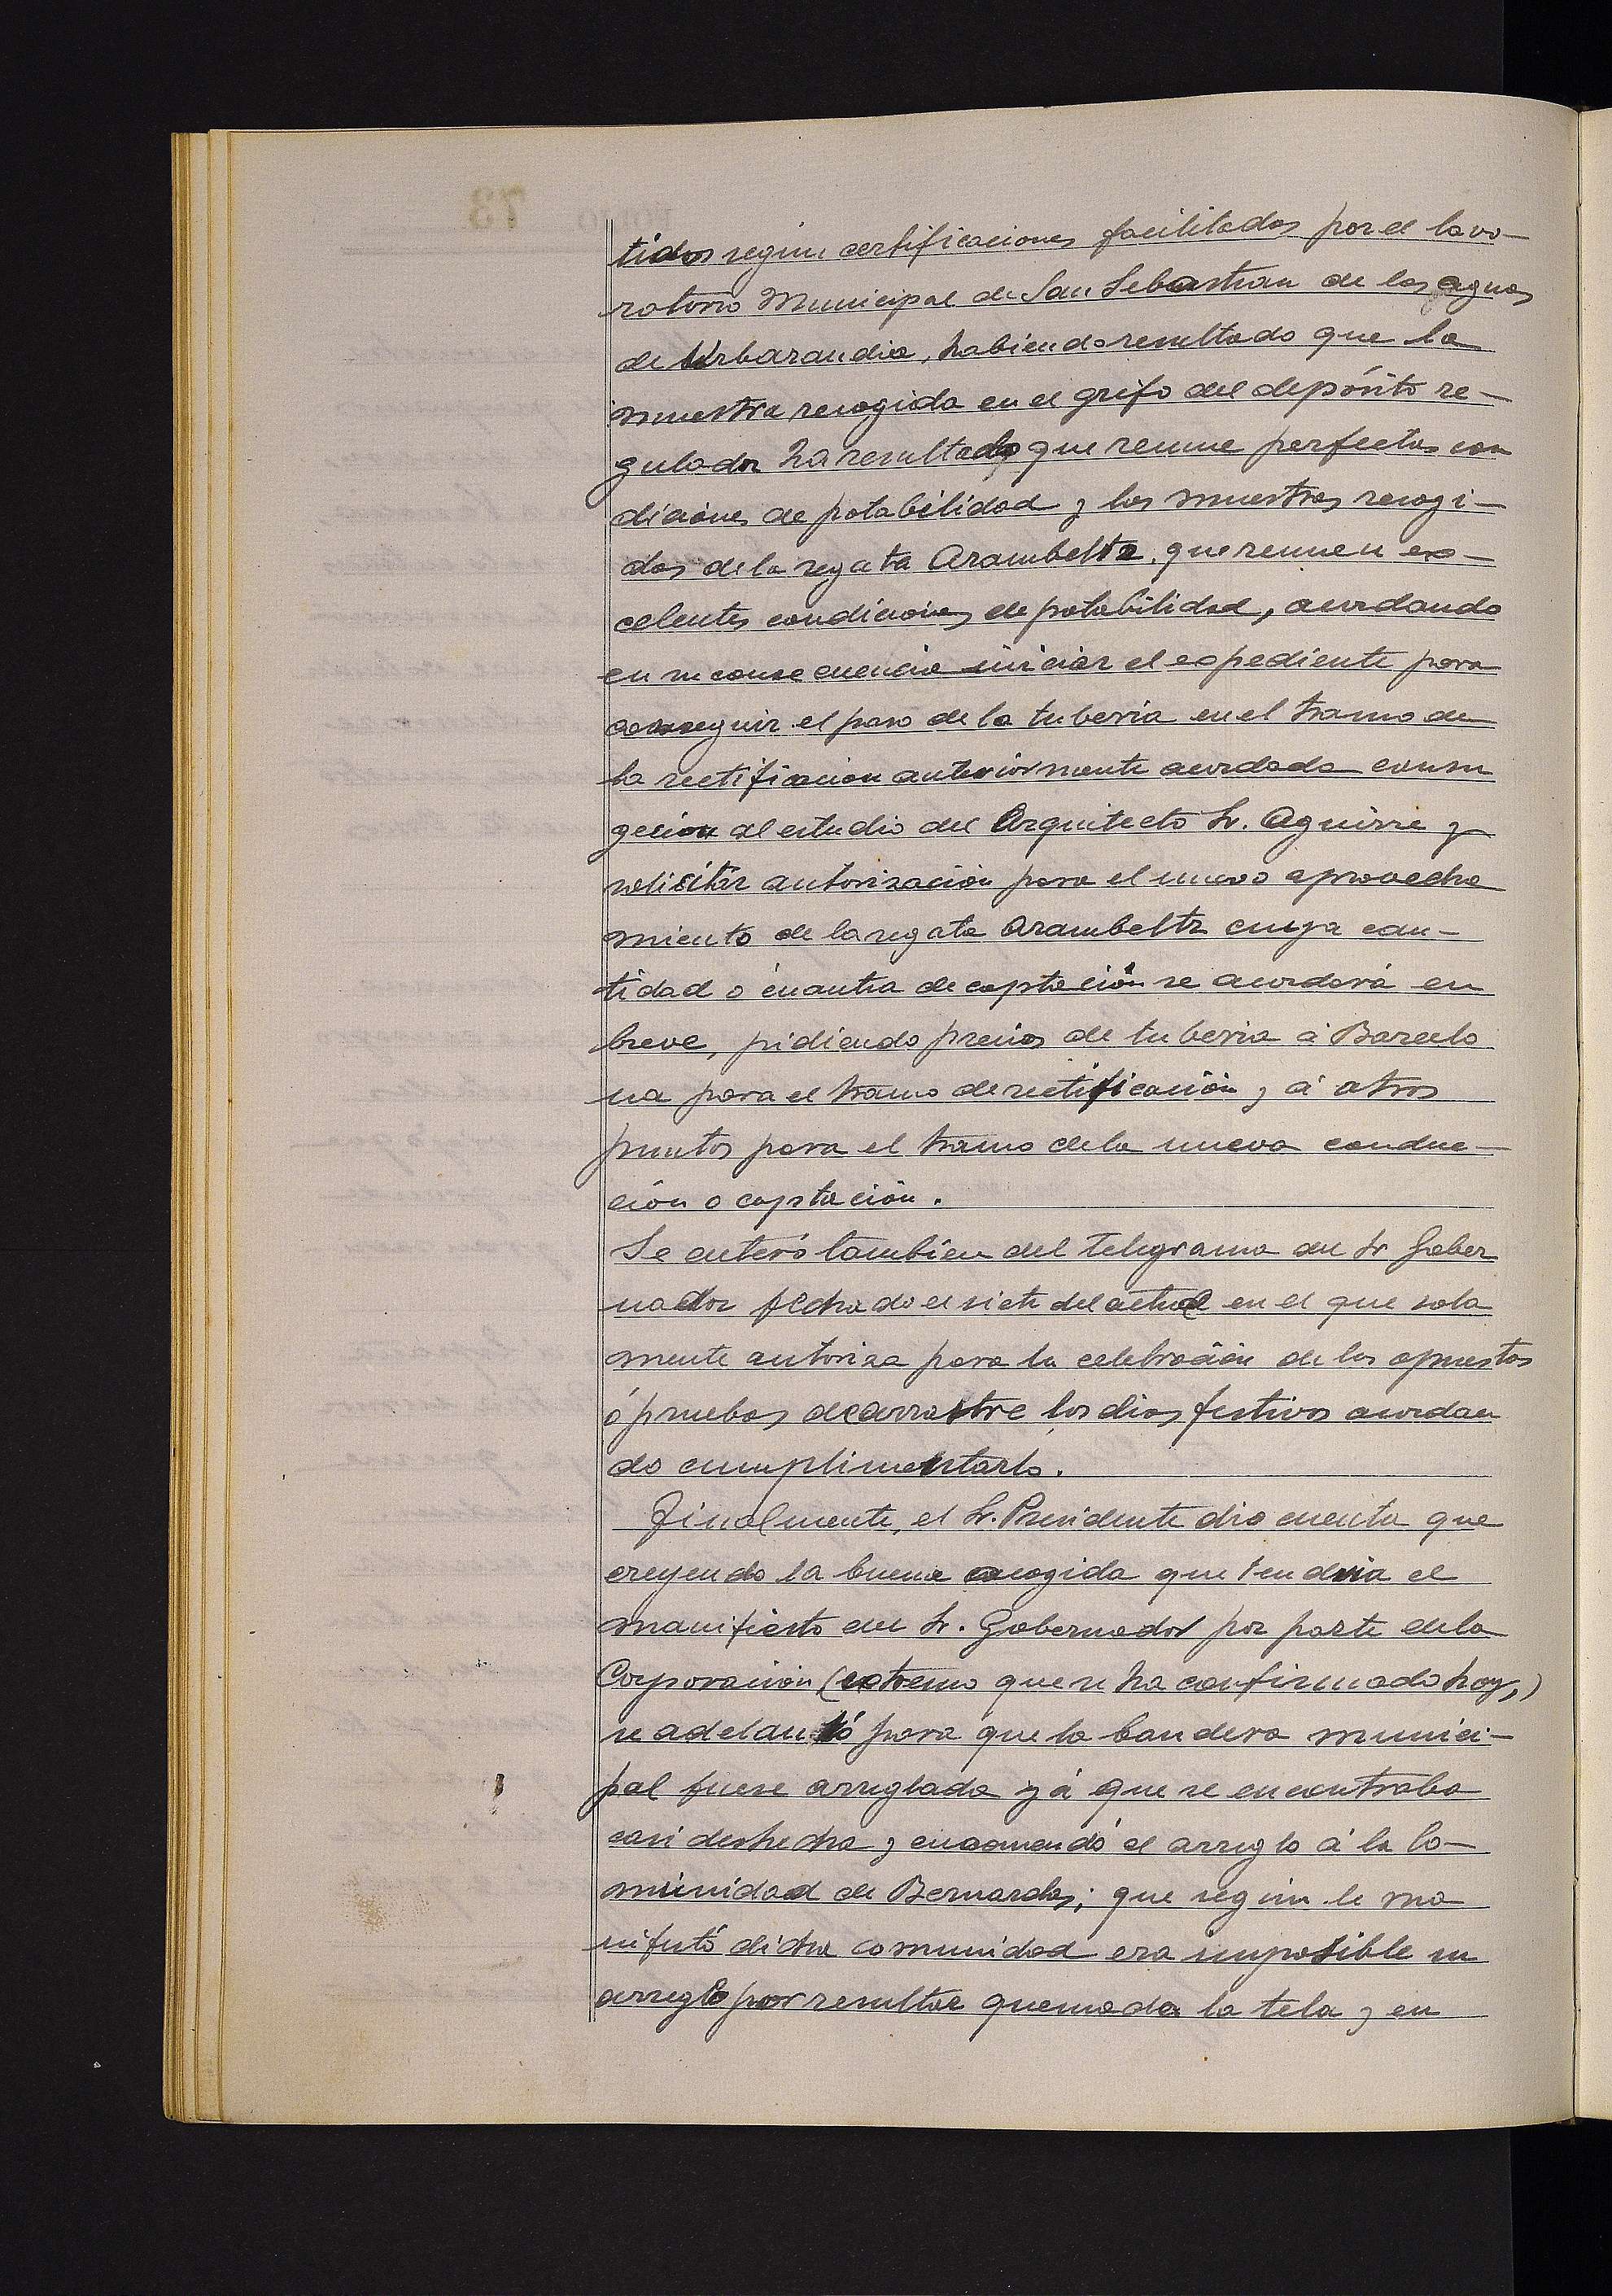 tidos según certificaciones facilitadas por el lavo-
ratorio Municipal de San Sebastian de las aguas
de Urbarandia, habiendo resultado que la
muestra recogida en el grifo del depósito re-
gulador ha resultado que reune perfectas con
diciones de potabilidad y las muestras recogi-
das de la regata Arambeltz, que reunen ex-
celentes condiciones de potabilidad, acordando
en su consecuencia iniciar el expediente para
conseguir el paso de la tuberia en el tramo de
la rectificacion anteriormente acordada con su
gecion al estudio del Arquitecto Sr. Aguirre y
solicitar autorización para el nuevo aprovecha
miento de la regata Arambeltz cuya can-
tidad ó cuantia de captación se acordará en
breve, pidiendo precios de tuberia á Barcelo
na para el tramo de rectificación y á otros
puntos para el tramo de la nueva conduc-
ción o captación.
Se enteró tambien del telegrama del Sr Gober
nador fechado el siete del actual en el que sola
mente autoriza para la celebración de las apuestas
ó pruebas de arrastre los dias festivos acordan
do cumplimentarlo.
Finalmente, el Sr. Presidente dio cuenta que
creyendo la buena acogida que tendria el
manifiesto del Sr. Gobernador por parte de la
Corporación (extremo que se ha confirmado hoy,)
se adelantó para que la bandera munici-
pal fuese arreglada yá que se encontraba
casi deshecha y encomendó el arreglo á la Co-
munidad de Bernardas; que según le ma
nifestó dicha comunidad era imposible su
arreglo por resultar quemada la tela y en